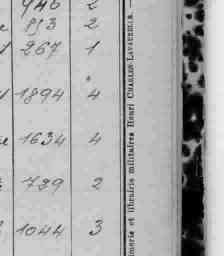 946 2
853 2
267 1
1894 4
1634 4
739 2
1044 3
imerie et librairie militaires Henri CHARLES-LAVAUZELLE. —